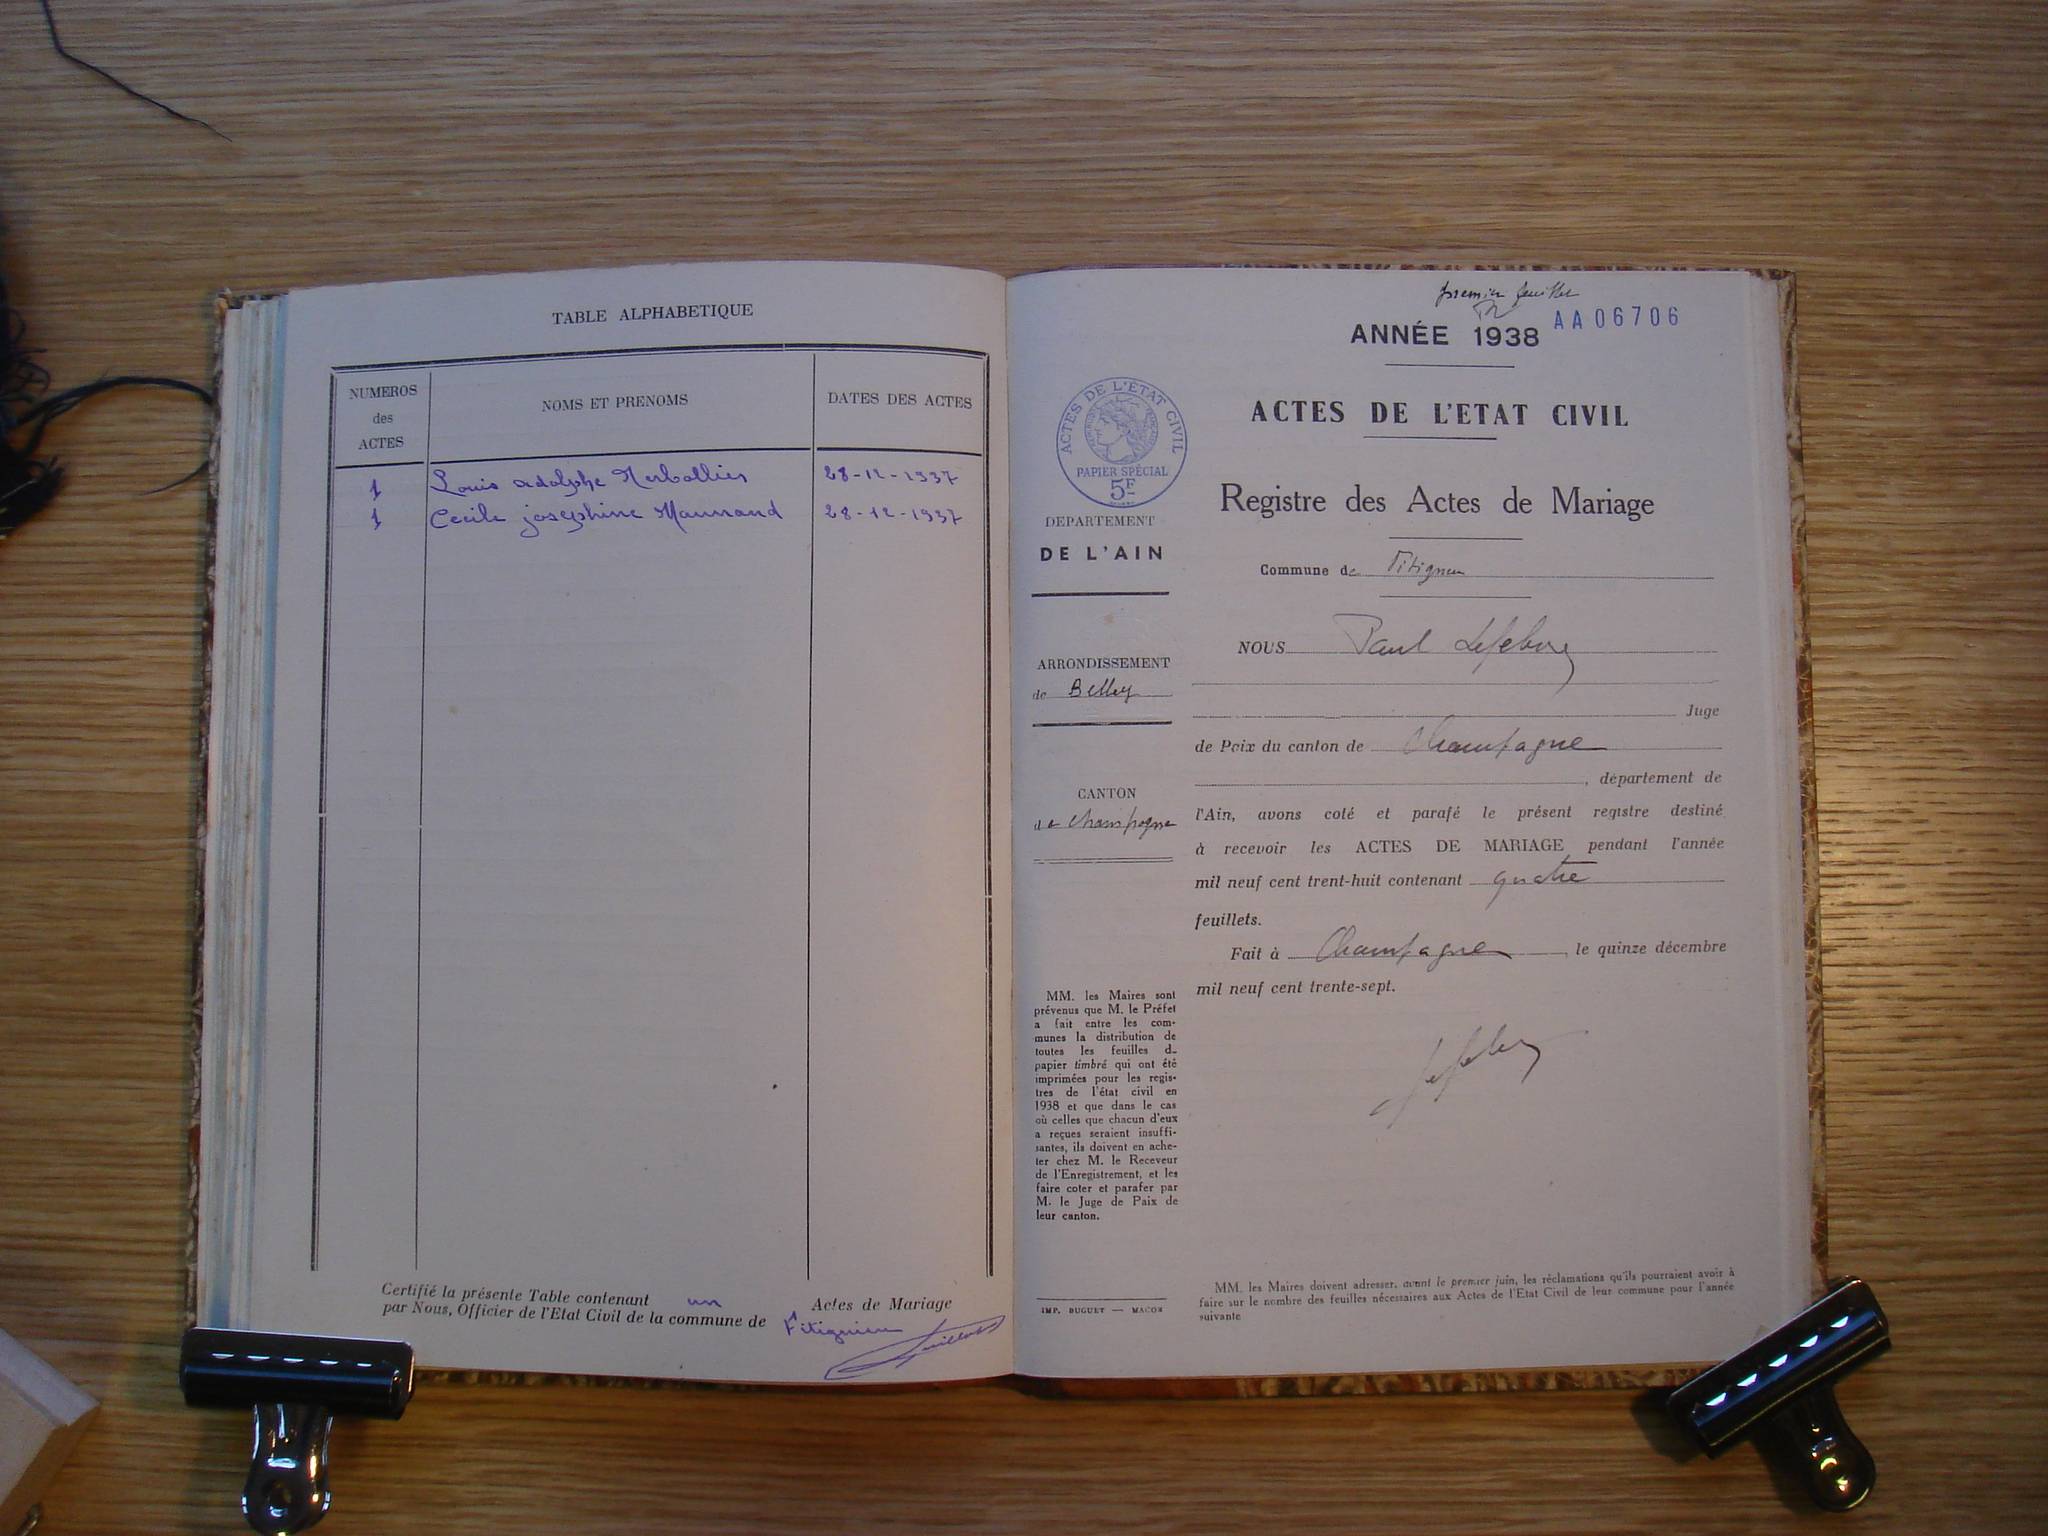 TABLE ALPHABETIQUE
NUMEROS
des
ACTES
NOMS ET PRENOMS
DATES DES ACTES
1 Louis adolphe 28-12-1937
1 Cecile josephine 28-12-1937
Certifié la présente Table contenant un Actes de Mariage
par Nous, Officier de l'Etat Civil de la commune de Fitignieu
premier feuillet
AA06706
ANNÉE 1938
ACTES DE L'ETAT CIVIL
Registre des Actes de Mariage
ACTES DE L'ÉTAT CIVIL
RÉPUBLIQUE FRANÇAISE
PAPIER SPÉCIAL
5F
DEPARTEMENT
DE L'AIN
ARRONDISSEMENT
de Belley
CANTON
de Champagne
MM. les Maires sont
prévenus que M. le Préfet
a fait entre les com-
munes la distribution de
toutes les feuilles d
papier timbré qui ont été
imprimées pour les regis-
tres de l'état civil en
1938 et que dans le cas
où celles que chacun d'eux
a reçues seraient insuffi-
santes, ils doivent en ache-
ter chez M. le Receveur
de l'Enregistrement, et les
faire coter et parafer par
M. le Juge de Paix de
leur canton.
IMP. BUGUET — MACON
Commune de Fitignieu
NOUS Paul Lefebvre
Juge
de Paix du canton de Champagne
, département de
l'Ain, avons coté et parafé le présent registre destiné
à recevoir les ACTES DE MARIAGE pendant l'année
mil neuf cent trent-huit contenant quatre
feuillets.
Fait à Champagne, le quinze décembre
mil neuf cent trente-sept.
Lefebvre
MM. les Maires doivent adresser, avant le premier juin, les réclamations qu'ils pourraient avoir à
faire sur le nombre des feuilles nécessaires aux Actes de l'Etat Civil de leur commune pour l'année
suivante